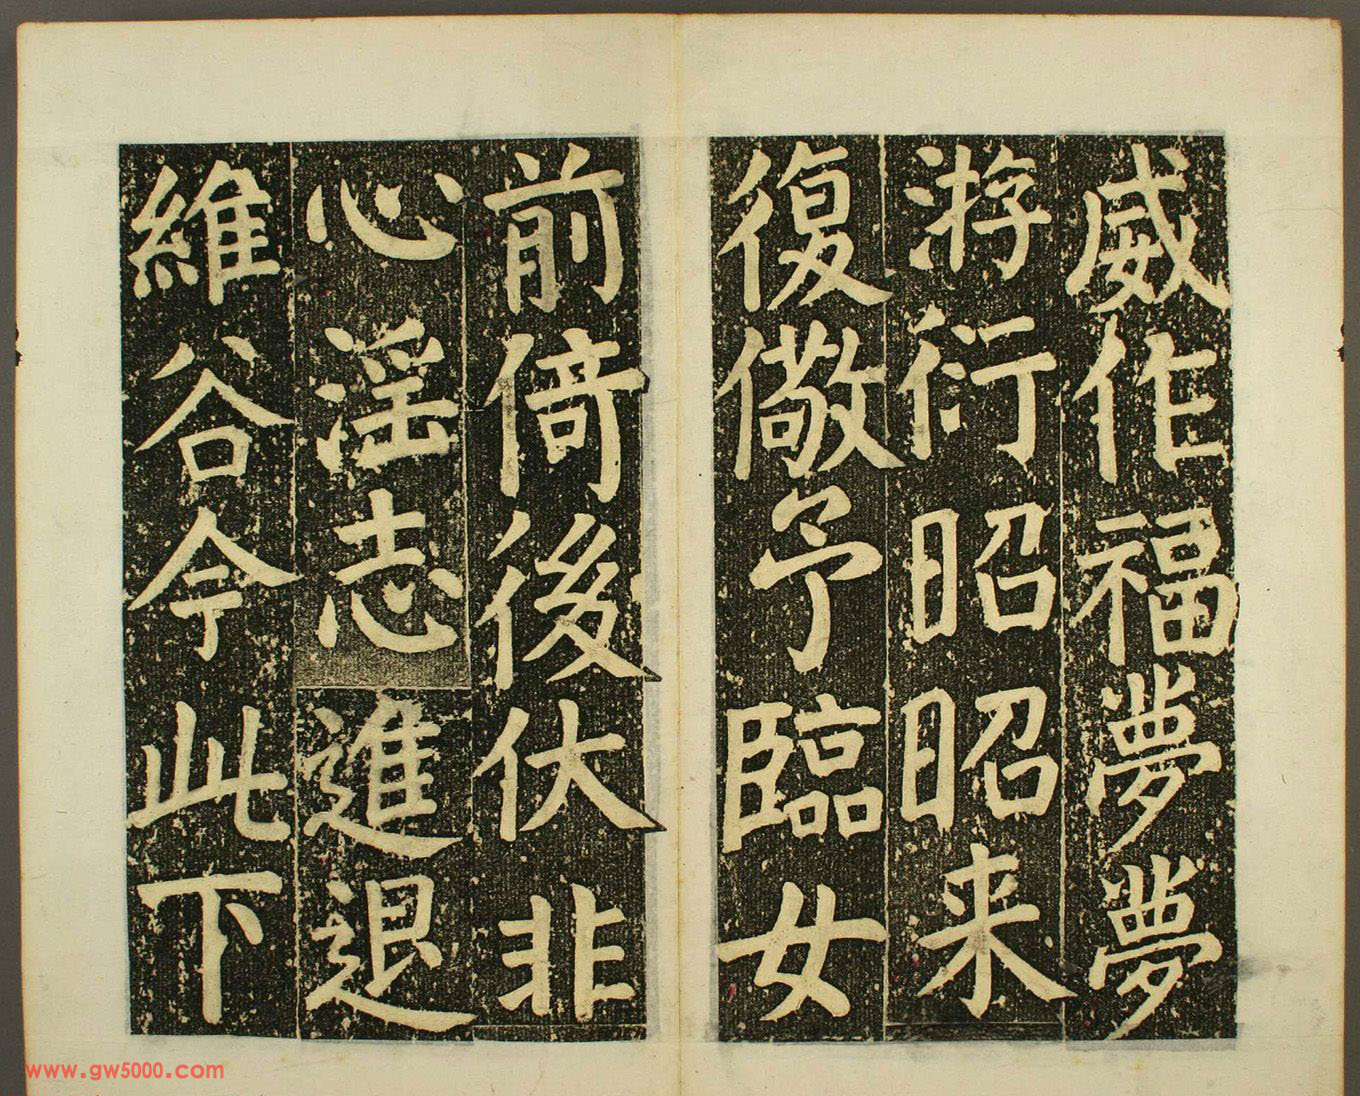 威作福夢夢
游衍昭昭来
復儆予臨女
前倚後伏非
心淫志進退
維谷今此下
www.gw5000.com